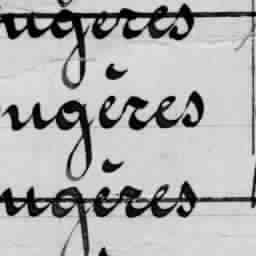 ugères
ugères
ugères